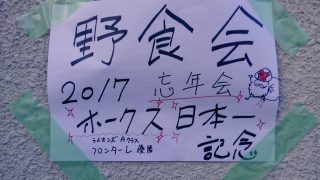 野食会
2017 忘年会
ホークス日本一
ライオンズ Aクラス
フロンターレ 優勝
記念